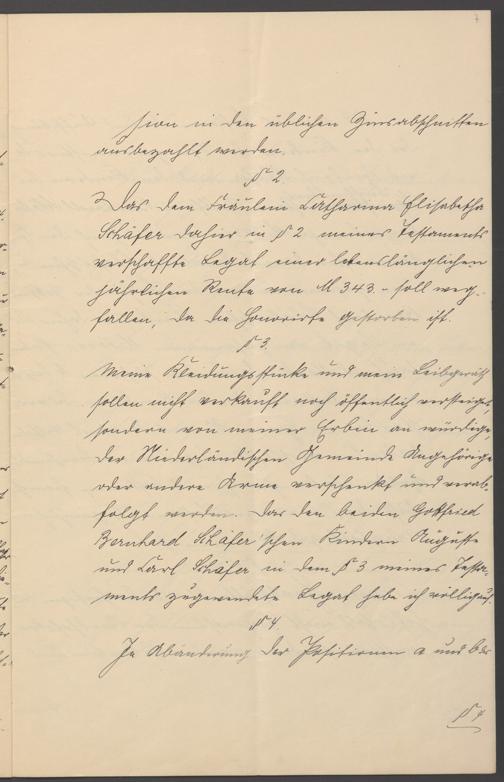 7
sion in den üblichen Zinsabschnitten
ausbezahlt werden.
§ 2
Das dem Fräulein Catharina Elisabetha
Schäfer dahier in § 2 meines Testaments
verschaffte Legat einer lebenslänglichen
jährlichen Rente von M 343.- soll weg-
fallen, da die Honorirte gestorben ist.
§ 3.
Meine Kleidungsstücke und mein Leibgeräth
sollen nicht verkauft noch öffentlich versteigert,
sondern von meiner Erbin an würdige,
der Niederländischen Gemeinde Angehörige
oder andere Arme verschenkt und verab-
folgt werden. Das den beiden Gottfried
Bernhard Schäfer'schen Kindern Auguste
und Carl Schäfer in dem § 3 meines Testa-
ments zugewendete Legat hebe ich völlig auf.
§ 4
In Abänderung der Positionen a und b des
§ 4